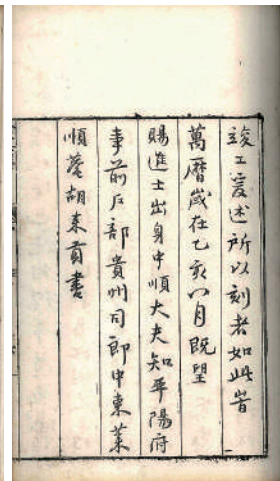 竣工爰述所以刻者如此峕
萬曆歲在乙亥八月既望
賜進士出身中順大夫知平陽府
事前戶部貴州司郎中東萊
順菴胡來貢書